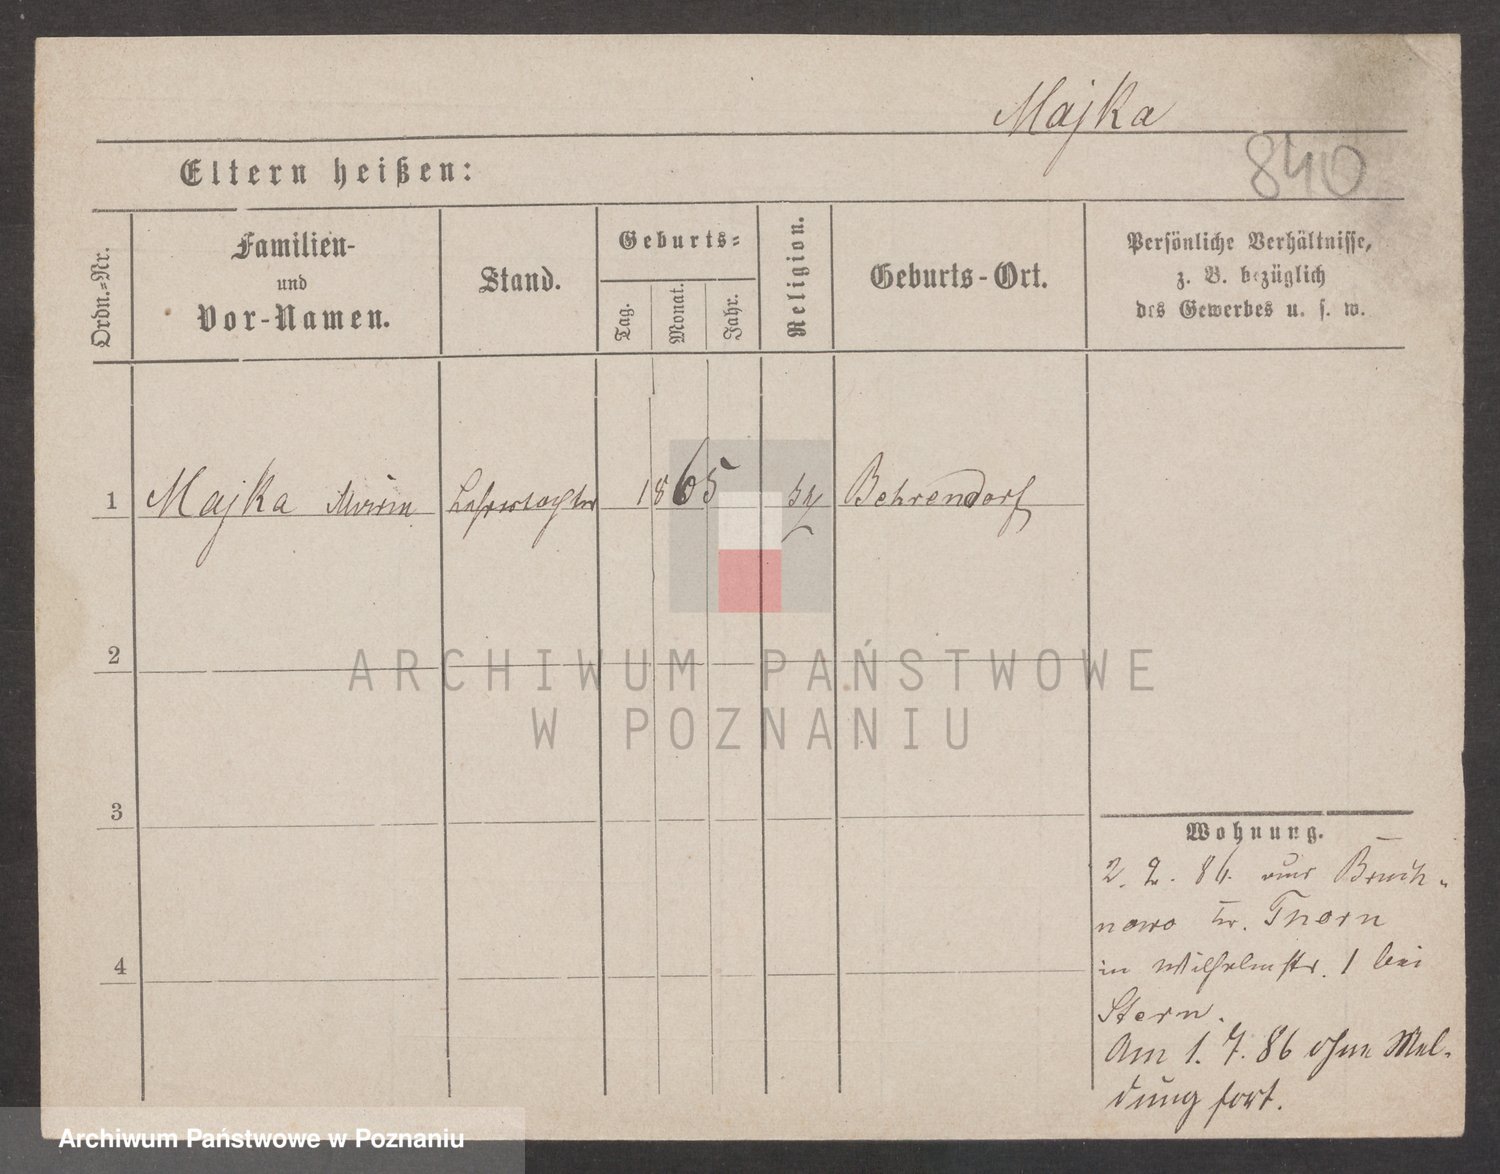 Majka
840
Eltern heißen:
Ordn.=Nr.
Familien-
und
Vor-Namen.
Stand.
Geburts=
Tag.
Monat.
Jahr.
Religion.
Geburts-Ort.
Persönliche Verhältnisse,
z. B. bezüglich
des Gewerbes u. s. w.
1 Majka 1865 Behrendorf
2
ARCHIWUM PAŃSTWOWE
W POZNANIU
3
Wohnung.
2. 2. 86. aus Bruch-
nowo Kr. Thorn
4
in Wilhelmstr. 1 bei
Stern.
Am 1. 7. 86 ohne Mel-
dung fort.
Archiwum Państwowe w Poznaniu